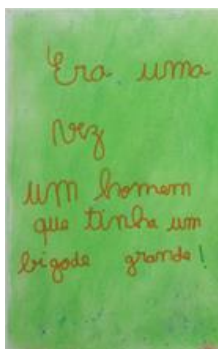 Era uma
vez
um homem
que tinha um
bigode grande!